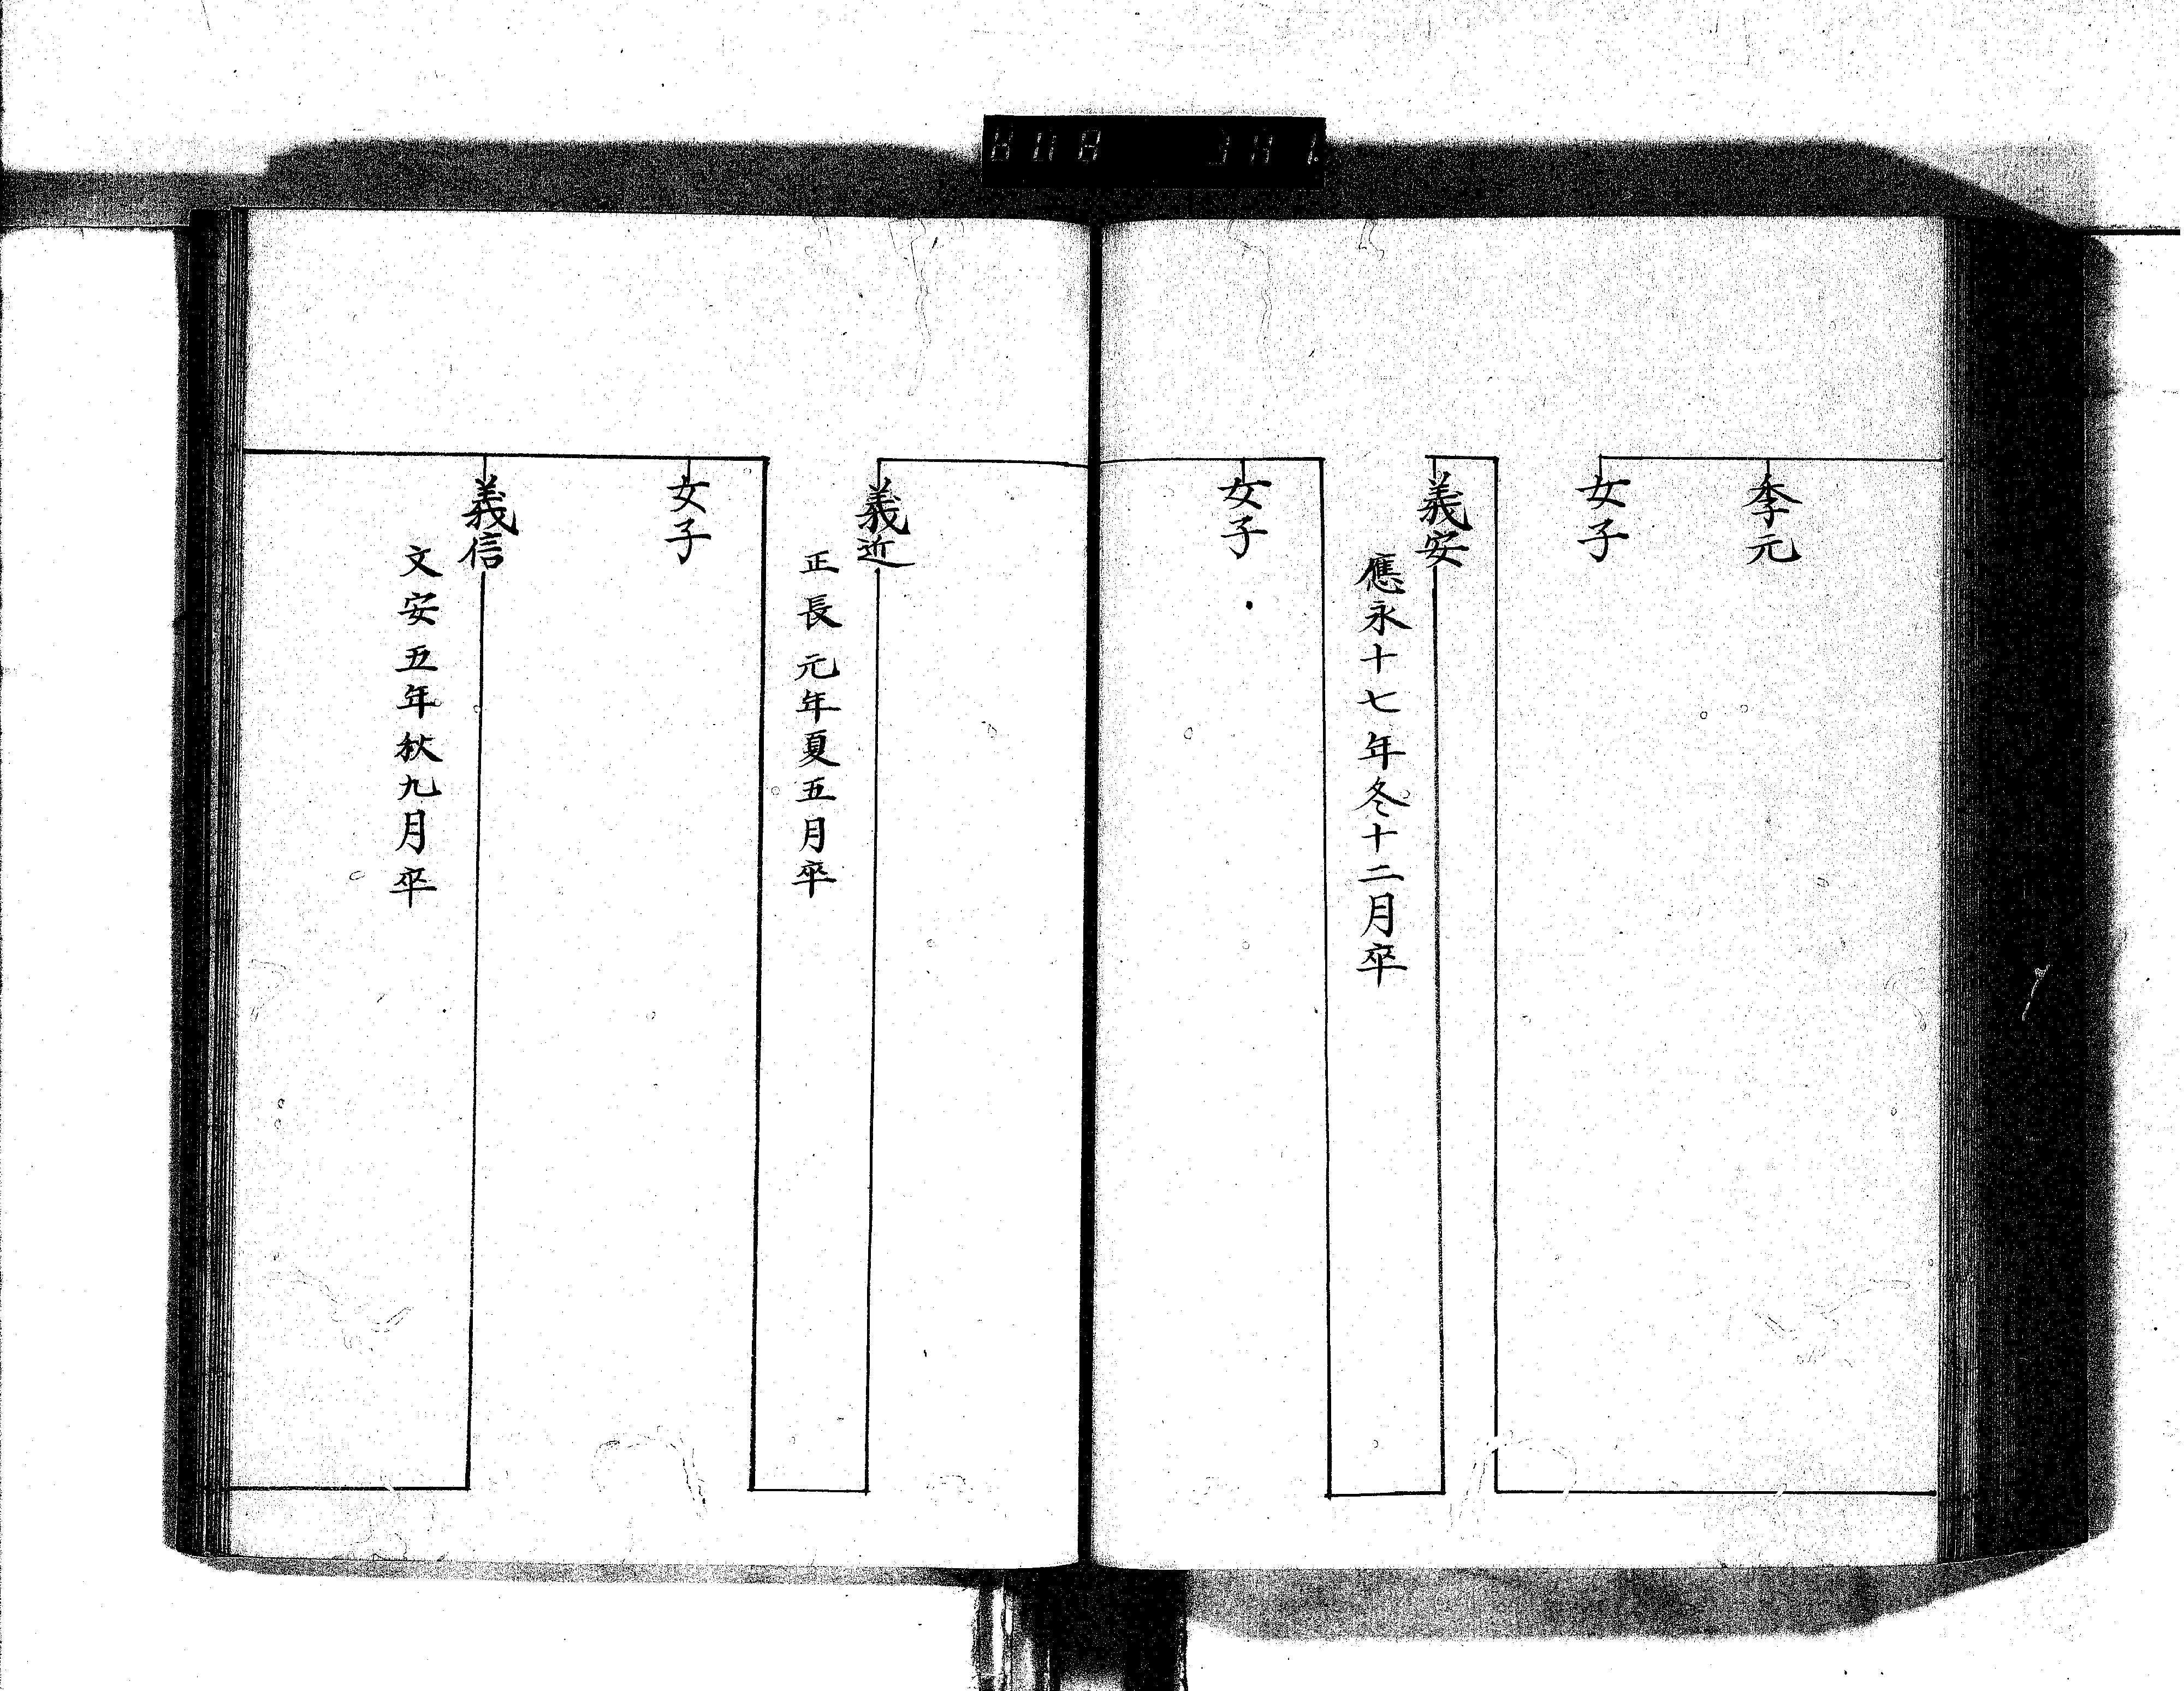 季元
女子
義安
應永十七年冬十二月卒
女子
義近
正長元年夏五月卒
女子
義信
文安五年秋九月卒